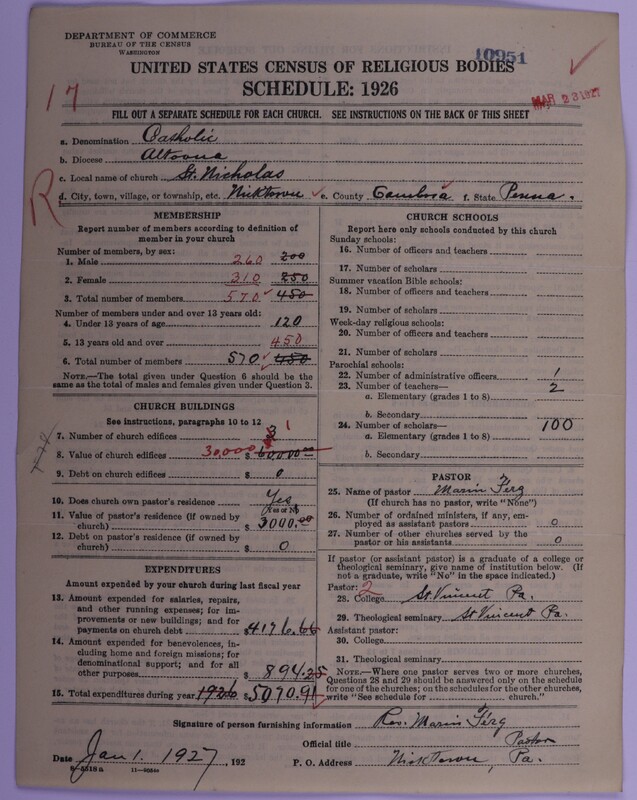 DEPARTMENT OF COMMERCE
BUREAU OF THE CENSUS
WASHINGTON
10951
UNITED STATES CENSUS OF RELIGIOUS BODIES
SCHEDULE: 1926
MAR 23 1927
17
FILL OUT A SEPARATE SCHEDULE FOR EACH CHURCH. SEE INSTRUCTIONS ON THE BACK OF THIS SHEET
a. Denomination Catholic
b. Diocese Altoona
c. Local name of church St. Nicholas
R
d. City, town, village, or township, etc. Nicktown e. County Cambria f. State Penna.
MEMBERSHIP
Report number of members according to definition of member in your church
Number of members, by sex:
1. Male 260 200
2. Female 310 250
3. Total number of members 570 450
Number of members under and over 13 years old:
4. Under 13 years of age 120
5. 13 years old and over 450
6. Total number of members 570 450
NOTE.—The total given under Question 6 should be the same as the total of males and females given under Question 3.
CHURCH BUILDINGS
See instructions, paragraphs 10 to 12
7. Number of church edifices 3 1
8. Value of church edifices 30,000 $ 60,000.00
9. Debt on church edifices $ 0
10. Does church own pastor's residence Yes
Yes or No
11. Value of pastor's residence (if owned by church) $ 3000.00
12. Debt on pastor's residence (if owned by church) $ 0
EXPENDITURES
Amount expended by your church during last fiscal year
13. Amount expended for salaries, repairs, and other running expenses; for improvements or new buildings; and for payments on church debt $ 4196.66
14. Amount expended for benevolences, including home and foreign missions; for denominational support; and for all other purposes $ 894.25
15. Total expenditures during year 1926 $ 5090.91
CHURCH SCHOOLS
Report here only schools conducted by this church
Sunday schools:
16. Number of officers and teachers
17. Number of scholars
Summer vacation Bible schools:
18. Number of officers and teachers
19. Number of scholars
Week-day religious schools:
20. Number of officers and teachers
21. Number of scholars
Parochial schools:
22. Number of administrative officers 1
23. Number of teachers— 2
a. Elementary (grades 1 to 8)
b. Secondary
24. Number of scholars— 100
a. Elementary (grades 1 to 8)
b. Secondary
PASTOR
25. Name of pastor Marin Ferg
(If church has no pastor, write "None")
26. Number of ordained ministers, if any, employed as assistant pastors 0
27. Number of other churches served by the pastor or his assistants 0
If pastor (or assistant pastor) is a graduate of a college or theological seminary, give name of institution below. (If not a graduate, write "No" in the space indicated.)
Pastor: 2
28. College St. Vincent Pa.
29. Theological seminary St Vincent Pa.
Assistant pastor:
30. College
31. Theological seminary
NOTE.—Where one pastor serves two or more churches, Questions 28 and 29 should be answered only on the schedule for one of the churches; on the schedules for the other churches, write "See schedule for church."
Signature of person furnishing information Rev. Marin Ferg
Official title Pastor
Date Jan 1. 1927, 192 P. O. Address Nicktown, Pa.
8—5518a 11—9584